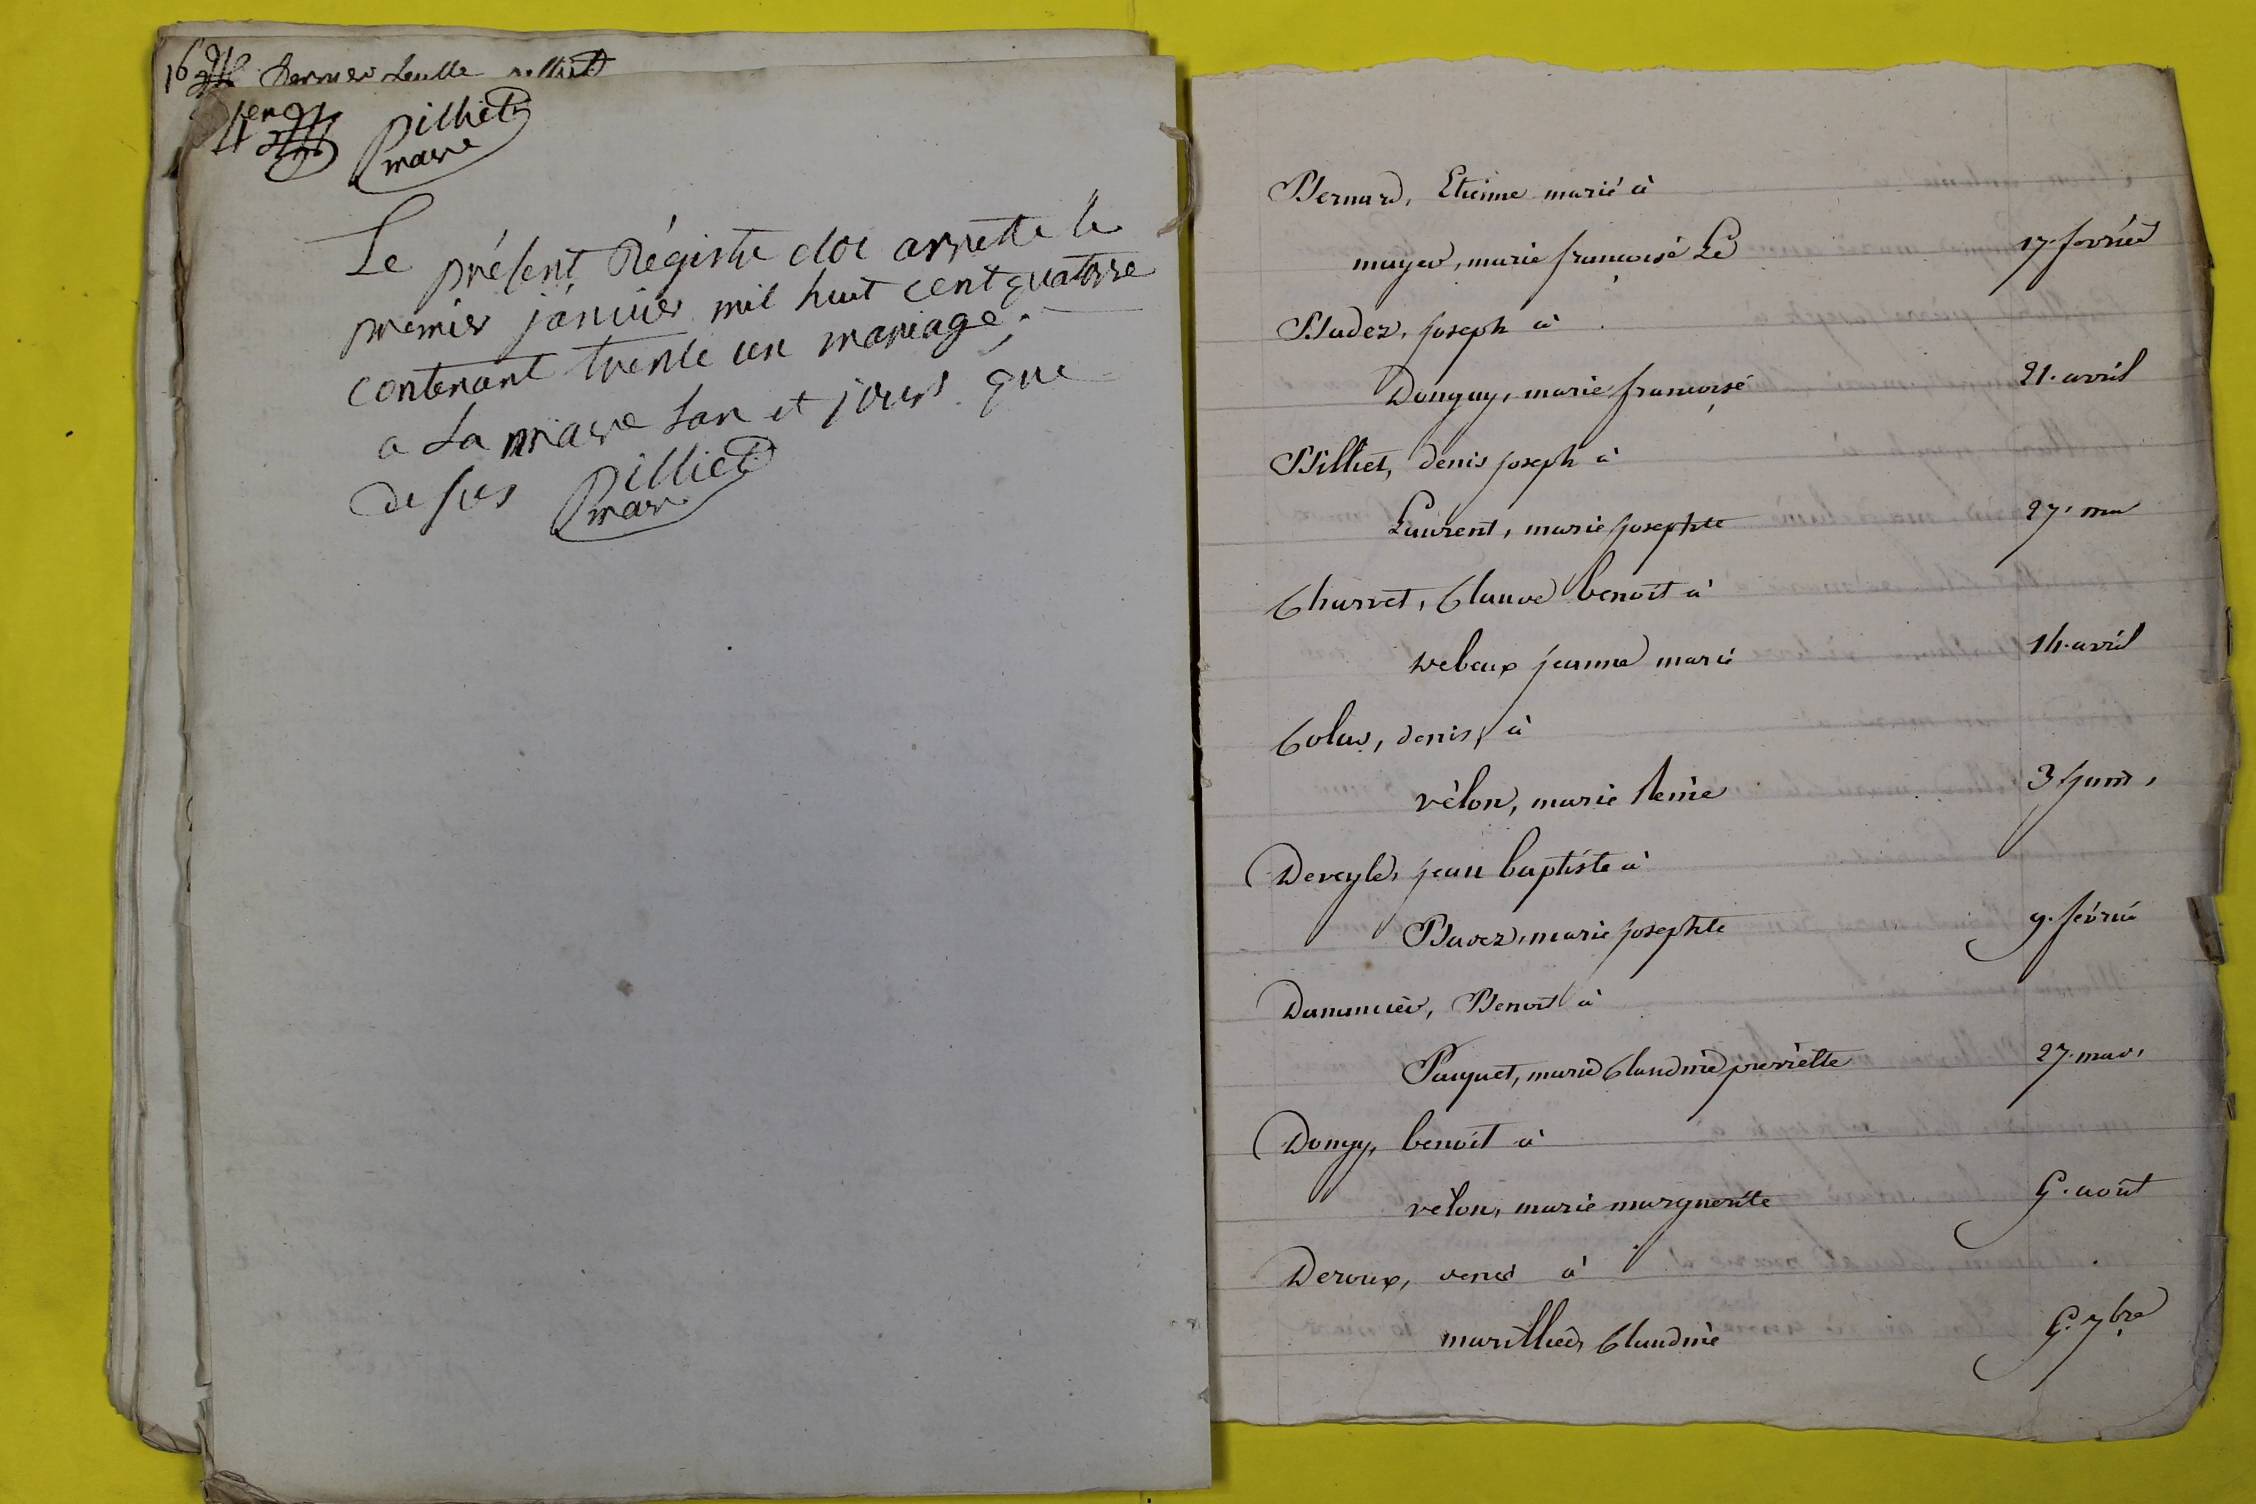 16 dernier feuille
Billiet
maire
Le présent Régistre cloc arrette le
premier janvier mil huit cent quatorze
contenant trente un mariage;
a La maire Lan et jours que
desus Billiet
maire
Bernard, Etienne marié à
mayer, marie françoise Le 17. fevrier
Badez, joseph à
Donguy, marie françoise 21. avril
Billiet, denis joseph à
Laurent, marie josephte 27.
Charvet, Claude benoit à
Debaux jeanne marie 14. avril
Colas, denis, à
vélon, marie Reine 3. juin,
Deveyle, jean baptiste à
Badez, marie josephte 9. fevrier
Benoit à
Paquet, marie Claudine pierrette 27.
Dongy, benoit à
vélon, marie marguerite G. août
Deroux, denis à
Claudine G. 7bre